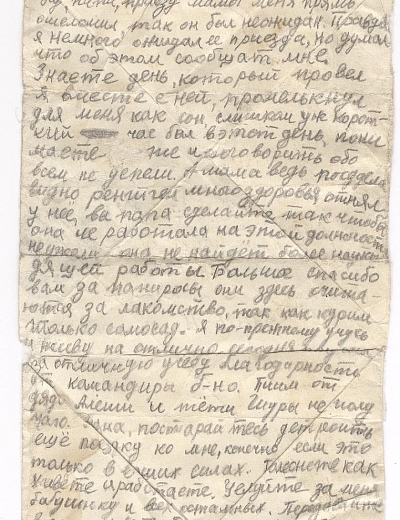 папа, приезд мамы меня прямо
ошеломил так он был неожидан. Правда
я немного ожидал ее приезда, но думал
что об этом сообщат мне.
Знаете день, который провел
я вместе с ней, промелькнул
для меня как сон, слишком уж корот-
кий час был в этот день, пони
маете же и поговорить обо
всем не успели. А мама ведь поседела
видно рентген много здоровья отнял
у неё, вы папа сделайте так чтобы
она не работала на этой должности
неужели она не найдёт более
дящей работы Большое спасибо
вам за папиросы они здесь счита-
ются за лакомство, так как курим
только самосад. Я по-прежнему учусь
и живу на отлично
за отличную учебу благодарность
от командира б-на. Писем от
дяди Алеши и тёти Шуры не полу
чало. постарайтесь
ещё поездку ко мне, конечно если это
только в ваших силах. как
живете и работаете. Целуйте за меня
бабушку и всех остальных.